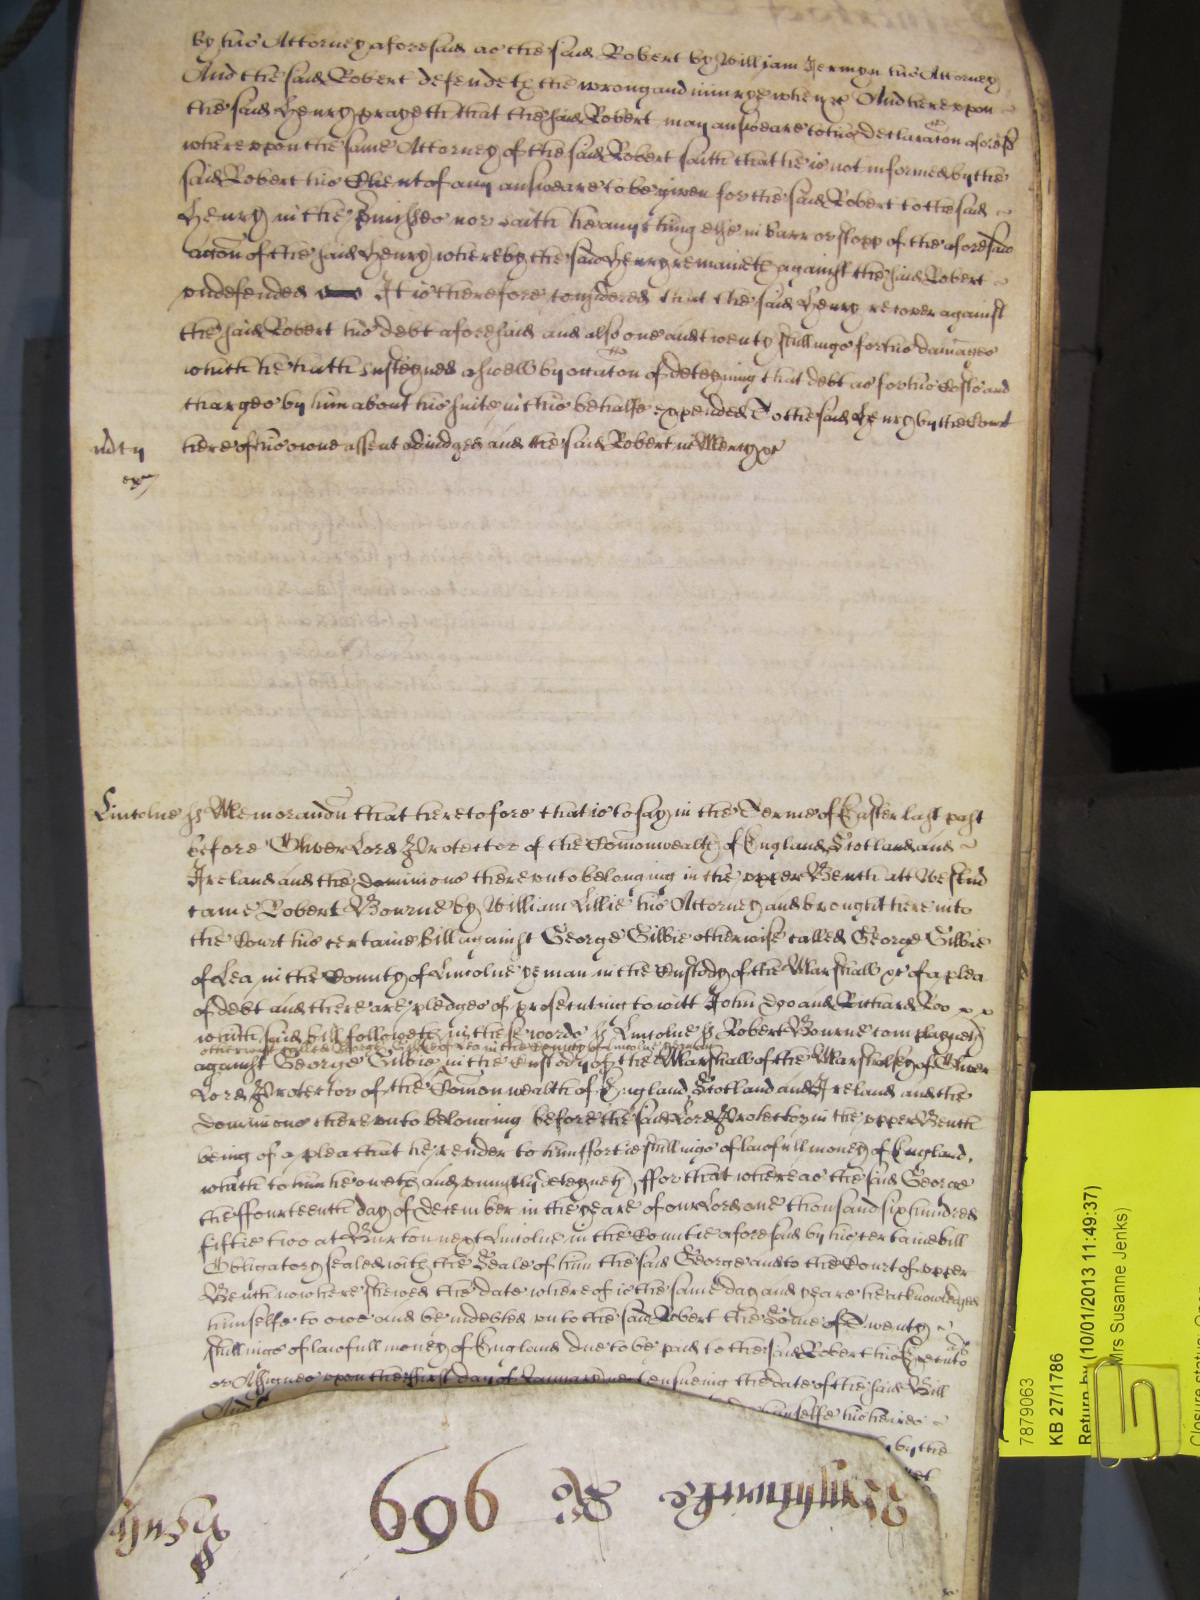 by his Attorney aforesaid as the said Robert by William Jermyn his Attorney
And the said Robert defendeth the wrong and iniurye when &c And hereupon
the said Henry prayeth that the said Robert may answeare to his declaracon aforesd
whereupon the same Attorney of the said Robert saith that he is not informed by the
said Robert his Client of any answeare to be given for the said Robert to the said
Henry in the p'misses nor saith hee any thing else in barr or stopp of the aforesaid
accon of the said Henry whereby the said Henry remaineth against the said Robert
undefended It is therefore considered that the said Henry recover against
the said Robert his debt aforesaid and also one and twenty shillings for his damages
which he hath susteyned aswell by occacon of deteyning that debt as for his Costs and
charges by him about his suite in this behalfe expended To the said Henry by the Court
here of his owne assent adiudged and the said Robert in Mercy &c
Lincolne ss Memorandu that heretofore that is to say in the Terme of Easter last past
before Oliver Lord Protector of the Comonwealth of England Scotland and
Ireland and the dominions thereunto belonging in the upper Bench att Westmr
came Robert Bourne by William Lillie his Attorney and brought here into
the Court his certaine bill against George Gilbie otherwise called George Gilbie
of Lea in the County of Lincolne yeman in the Custody of the Marshall &c of a plea
of debt and there are pledges of prosecuting to witt John Doo and Richard Roo
which said bill followeth in these words ss Lincolne ss Robert Bourne complayneth
otherwise called George Gilbie of Lea in the County of Lincolne yeoman
against George Gilbie in the Custody of the Marshall of the Marshalsey of Oliver
Lord Protector of the Comon wealth of England Scotland and Ireland and the
dominions thereunto belonging before the said Lord Protector in the upper Bench
being of a plea that he render to him fortie shillings of lawfull money of England,
which to him he oweth and uniustly deteyneth ffor that whereas the said George
the ffourteenth day of december in the yeare of our Lord one thousand six hundred
fiftie two at Burton next Lincolne in the Countie aforesaid by his certaine bill
Obligatory sealed with the Seale of him the said George and to the Court of upper
Bench now here shewed the date whereof is the same day and yeare he acknowledged
himselfe to owe and be indebted unto the said Robert the Some of Twenty
shillings of lawfull money of England due to be paid to the said Robert his Executo
or Assignes upon the first day of January next ensueing the date of the said Bill
And himselfe his heires
by the
969
KB 27/1786
7879063
Return by (10/01/2013 11:49:37)
Mrs Susanne Jenks)